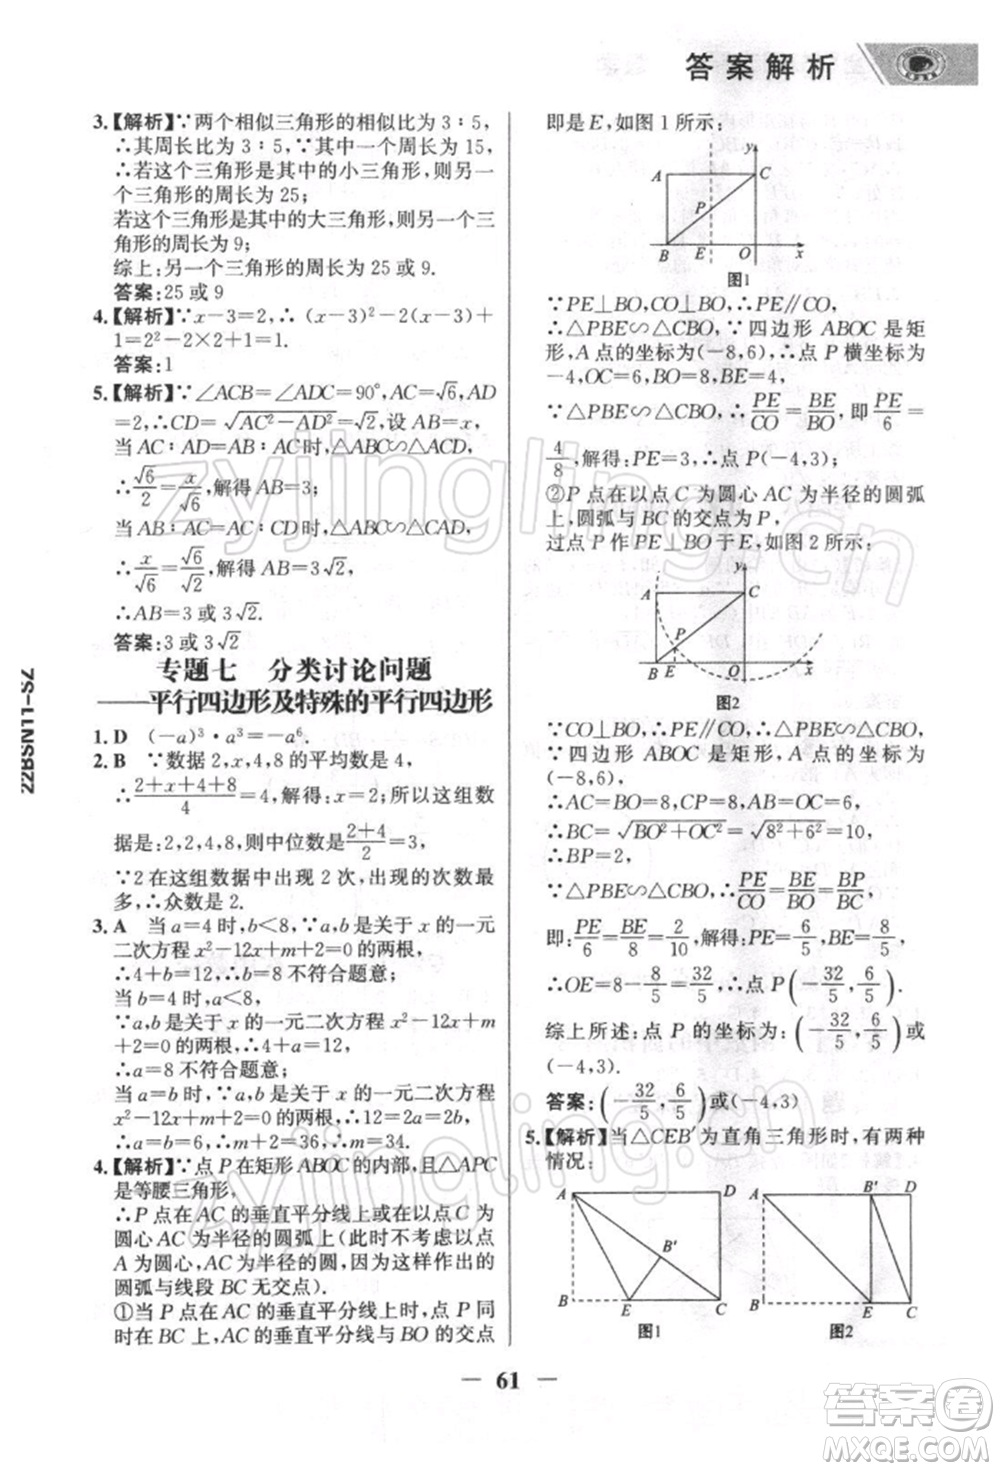 答案解析
3.【解析】∵两个相似三角形的相似比为3∶5,
∴其周长比为3∶5,
∵其中一个三角形的周长为15,
∴若这个三角形是其中的小三角形,则另一个三角形的周长为25;
若这个三角形是其中的大三角形,则另一个三角形的周长为9;
综上:另一个三角形的周长为25或9.
答案:25或9
4.【解析】∵x-3=2,∴(x-3)²-2(x-3)+
1=2²-2×2+1=1.
答案:1
5.【解析】∵∠ACB=∠ADC=90°,AC=√6,AD
=2,∴CD=√(AC²-AD²)=√2,设AB=x,
当AC∶AD=AB∶AC时,△ABC∽△ACD,
∴√6/2=x/√6,解得AB=3;
当AB∶AC=AC∶CD时,△ABC∽△CAD,
∴x/√6=√6/√2,解得AB=3√2,
∴AB=3或3√2.
答案:3或3√2
专题七 分类讨论问题
——平行四边形及特殊的平行四边形
1.D (-a)³·a³=-a⁶.
2.B ∵数据2,x,4,8的平均数是4,
∴(2+x+4+8)/4=4,解得:x=2;所以这组数
据是:2,2,4,8,则中位数是(2+4)/2=3,
∵2在这组数据中出现2次,出现的次数最多,
∴众数是2.
3.A 当a=4时,b<8,∵a,b是关于x的一元
二次方程x²-12x+m+2=0的两根,
∴4+b=12,∴b=8不符合题意;
当b=4时,a<8,
∵a,b是关于x的一元二次方程x²-12x+m
+2=0的两根,∴4+a=12,
∴a=8不符合题意;
当a=b时,∵a,b是关于x的一元二次方程
x²-12x+m+2=0的两根,∴12=2a=2b,
∴a=b=6,∴m+2=36,∴m=34.
4.【解析】∵点P在矩形ABOC的内部,且△APC
是等腰三角形,
∴P点在AC的垂直平分线上或在以点C为
圆心AC为半径的圆弧上(此两种情况以点
A为圆心,AC为半径的圆,这样作出的
圆弧与线段BC无交点).
①当P点在AC的垂直平分线上时,点P同
时在BC上,AC的垂直平分线与BO的交点
即是E,如图1所示:
y
A
C
P
B
E
O
x
图1
∵PE⊥BO,CO⊥BO,∴PE∥CO,
∴△PBE∽△CBO,∵四边形ABOC是矩
形,A点的坐标为(-8,6),∴点P横坐标为
-4,OC=6,BO=8,BE=4,
∵△PBE∽△CBO,∴PE/CO=BE/BO,即PE/6=
4/8,解得:PE=3,∴点P(-4,3);
②P点在以点C为圆心AC为半径的圆弧
上,圆弧与BC的交点为P,
过点P作PE⊥BO于E,如图2所示:
y
A
C
P
B
E
O
x
图2
∵CO⊥BO,∴PE∥CO,∴△PBE∽△CBO,
∵四边形ABOC是矩形,A点的坐标为
(-8,6),
∴AC=BO=8,CO=AB=6,
∴BC=√(BO²+OC²)=√(8²+6²)=10,
∴BP=2,
∵△PBE∽△CBO,∴PE/CO=BE/BO=BP/BC,
即:PE/6=BE/8=2/10,解得:PE=6/5,BE=8/5,
∴OE=8-8/5=32/5,∴点P(-32/5,6/5).
综上所述:点P的坐标为:(-32/5,6/5)或
(-4,3).
答案:(-32/5,6/5)或(-4,3)
5.【解析】当△CEB′为直角三角形时,有两种
情况:
A
D
B′
B
E
C
图1
A
B′
D
B
E
C
图2
22BSN11-SZ
61
zyjingling.cn
zyjingling.cn
答案圈
MXQE.COM